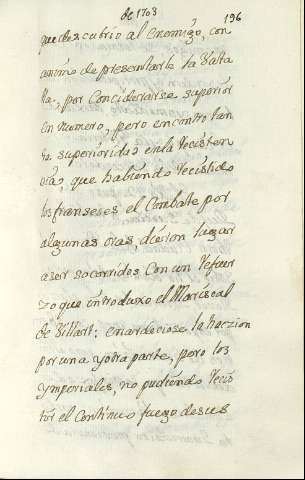 de 1703
196
que descubrio al Enemigo, con
animo de presentarle la Vata
lla, por Conciderarse superior
en numero, pero encontro tan
ta superioridad en la Recisten
cia, que habiendo Recistido
los franseses el Combate por
algunas oras, dieron lugar
a ser socorridos Con un Refuer
zo que introduxo el Mariscal
de Villart: enardeciose la haczion
por una y otra parte, pero los
Ymperiales, no pudiendo Recis
tir el Continuo fuego de sus